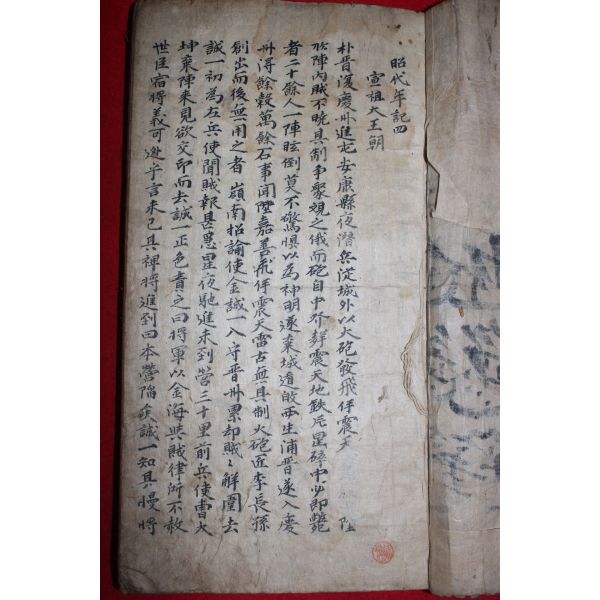 昭代年記四
宣祖大王朝
朴晉復慶州進屯安康縣夜潛兵從城外以大砲發飛侔震天 陞
於陣內賊不曉其制爭聚觀之俄而砲自中介葬震天地鉄片星碎中少即斃
者二十餘人一陣眩倒莫不驚惧以爲神明遂棄城遁敀西生浦晋遂入慶
州得餘穀萬餘石事聞陞嘉善飛侔震天雷古無其制火砲匠李長孫
創出而後無用之者 嶺南招諭使金誠一入守晋州累却賊〻解圍去
誠一初為左兵使聞賊報甚急星夜馳進未到營三十里前兵使曺大
坤棄陣来見欲交印而去誠一正色責之曰将軍以金海與賊律所不赦
世臣宿将義可逃乎言未已其裨将進到曰本營陷矣誠一知其慢将